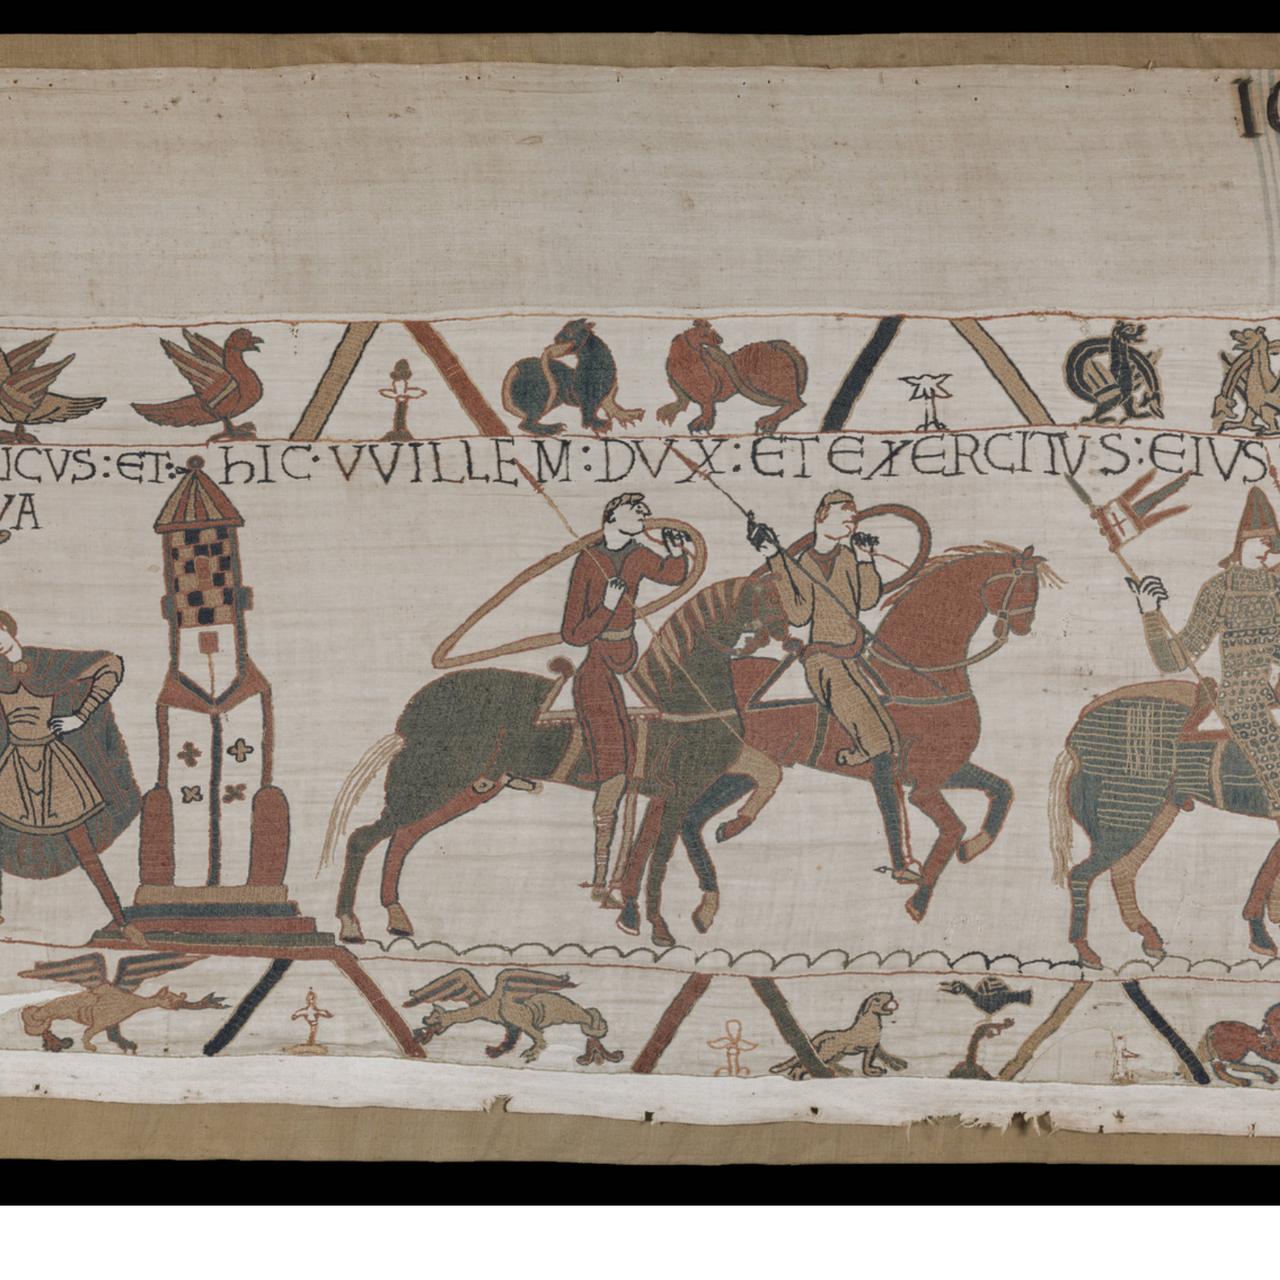 ICVS: ET: hIC· VVILLEM: DVX: ET EXERCITVS: EIVS
VA